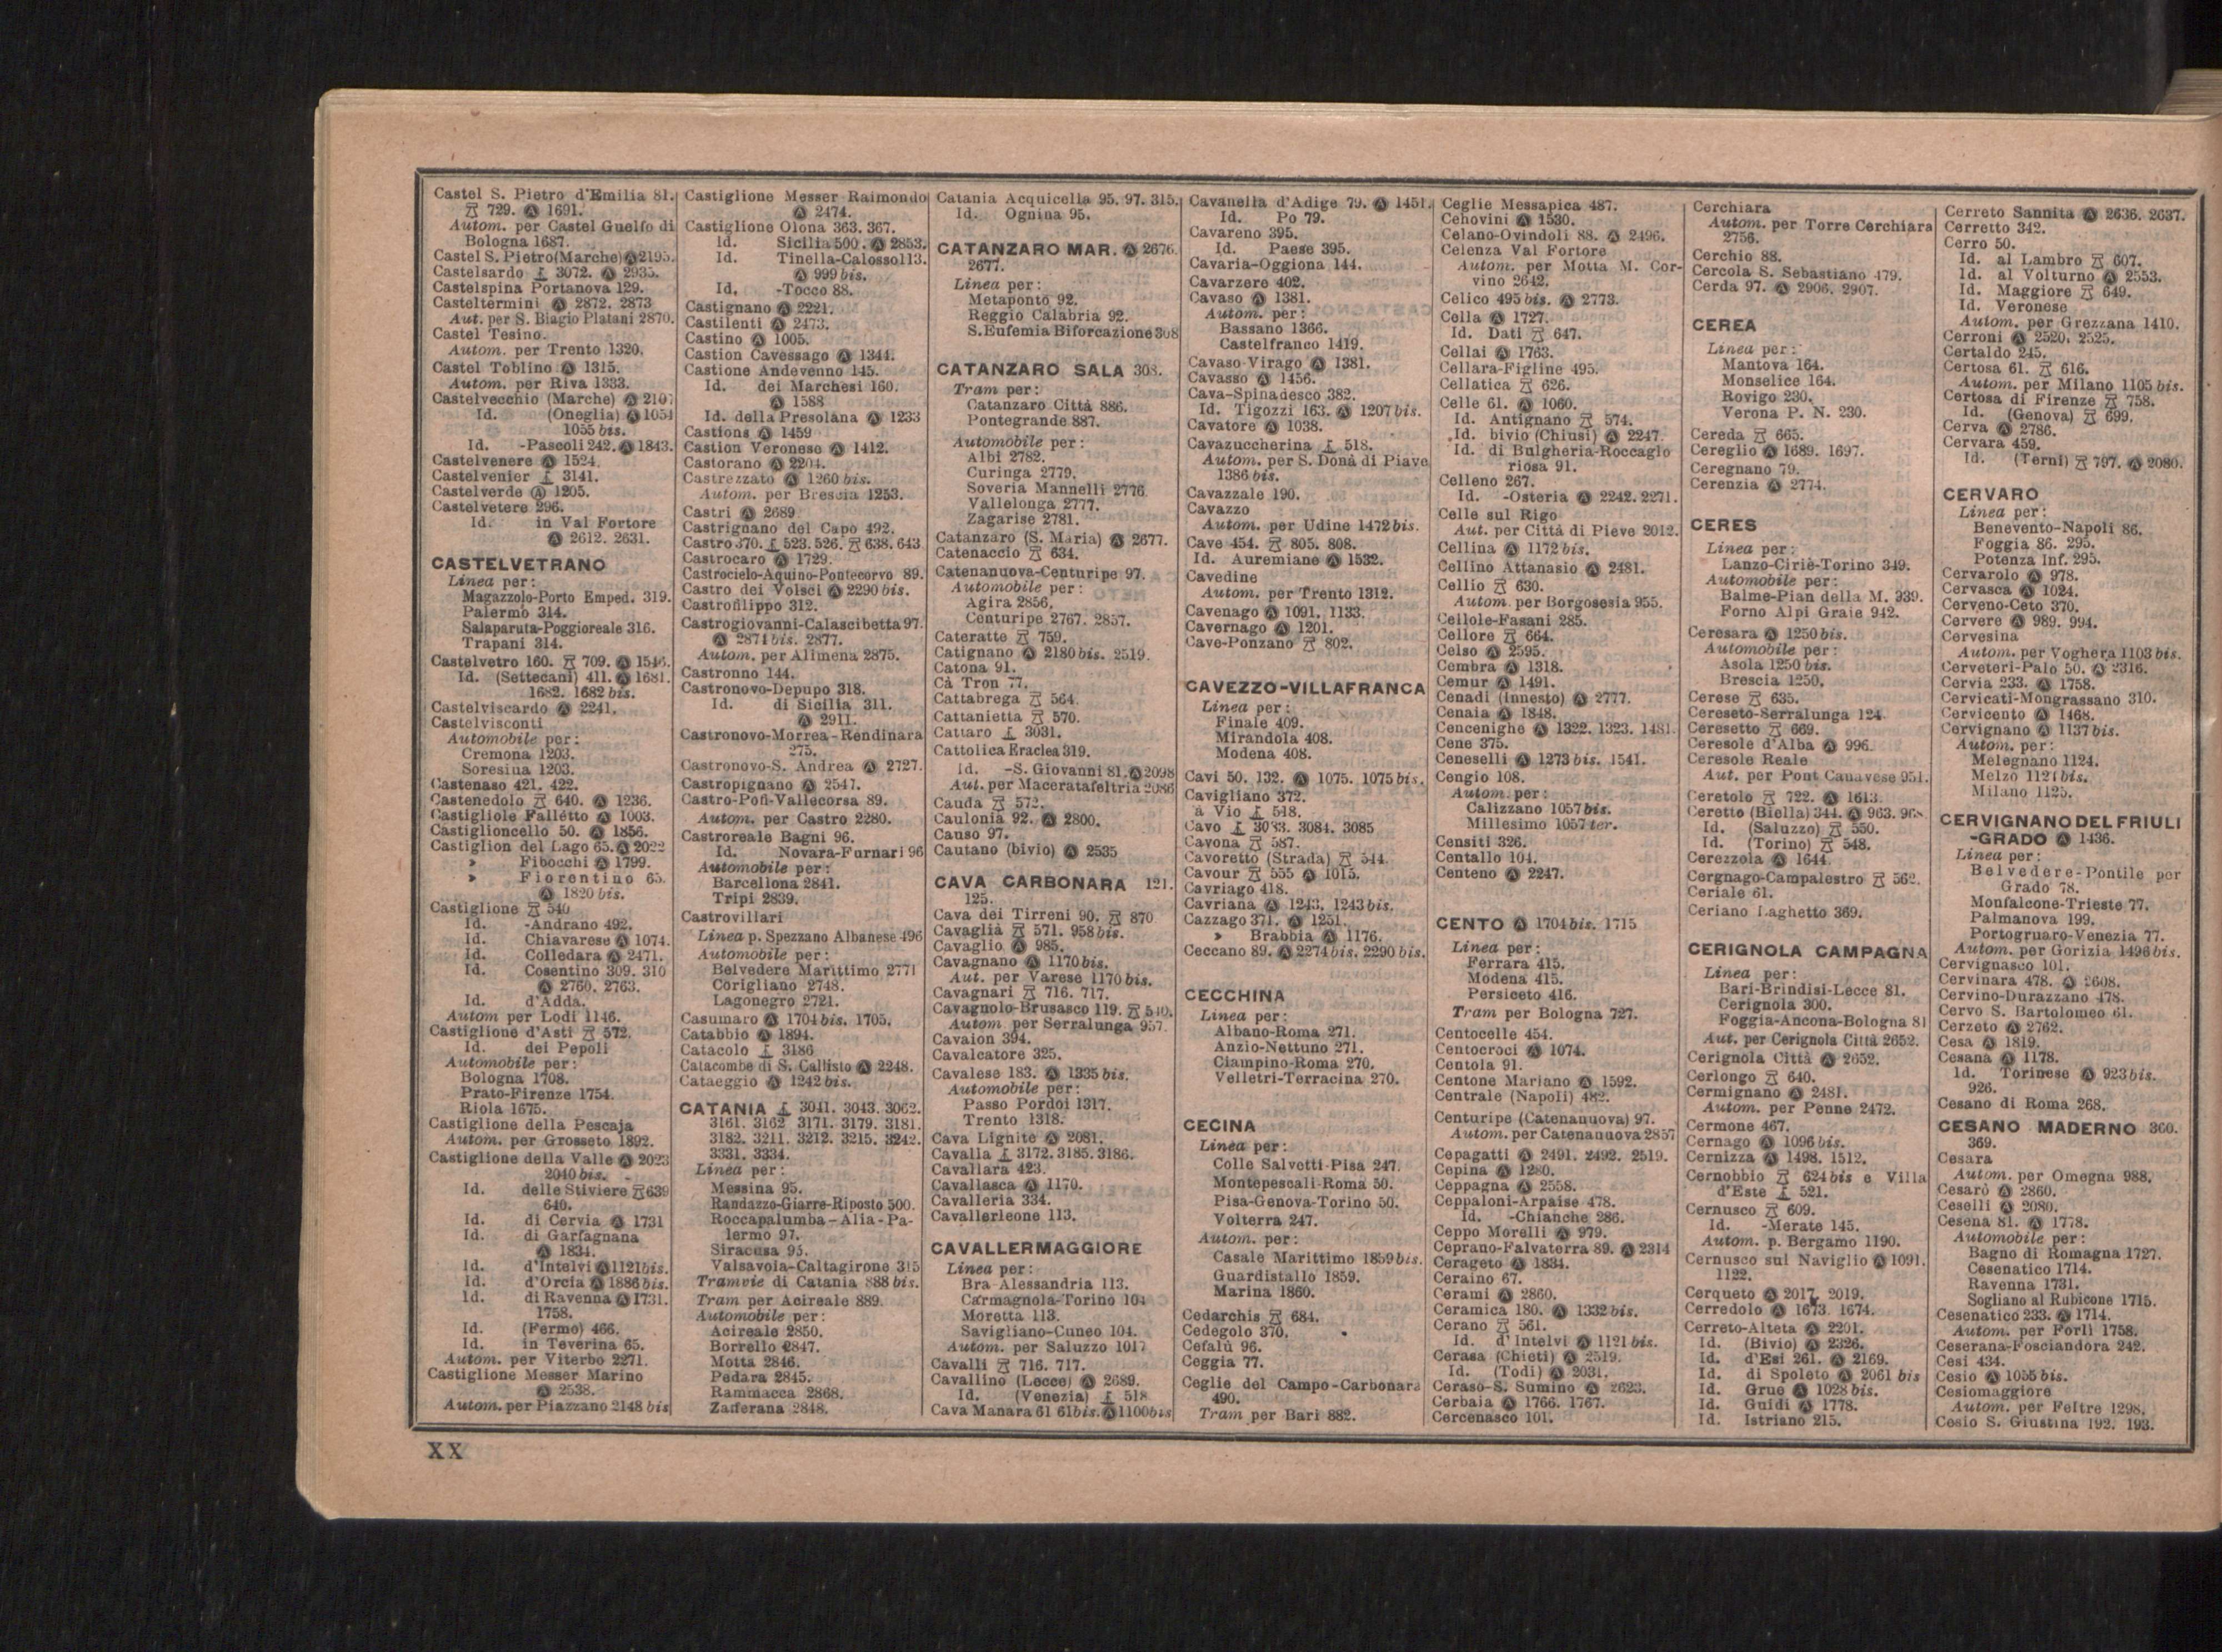 Castel S. Pietro d'Emilia 81.
729. Ⓐ 1691.
Autom. per Castel Guelfo di
Bologna 1687.
Castel S. Pietro (Marche) Ⓐ 2195.
Castelsardo 3072. Ⓐ 2935.
Castelspina Portanova 129.
Casteltermini Ⓐ 2872. 2873
Aut. per S. Biagio Platani 2870.
Castel Tesino.
Autom. per Trento 1320.
Castel Toblino Ⓐ 1315.
Autom. per Riva 1333.
Castelvecchio (Marche) Ⓐ 2107
Id. (Oneglia) Ⓐ 1054
1055 bis.
Id. -Pascoli 242. Ⓐ 1843.
Castelvenere Ⓐ 1524.
Castelvenier 3141.
Castelverde Ⓐ 1205.
Castelvetere 296.
Id. in Val Fortore
Ⓐ 2612. 2631.
CASTELVETRANO
Linea per:
Magazzolo-Porto Emped. 319.
Palermo 314.
Salaparuta-Poggioreale 316.
Trapani 314.
Castelvetro 160. 709. Ⓐ 1546.
Id. (Settecani) 411. Ⓐ 1681.
1682. 1682 bis.
Castelviscardo Ⓐ 2241.
Castelvisconti
Automobile per:
Cremona 1203.
Soresina 1203.
Castenaso 421. 422.
Castenedolo 640. Ⓐ 1236.
Castigliole Falletto Ⓐ 1003.
Castiglioncello 50. Ⓐ 1856.
Castiglion del Lago 65. Ⓐ 2022
» Fibocchi Ⓐ 1799.
» Fiorentino 65.
Ⓐ 1820 bis.
Castiglione 540
Id. -Andrano 492.
Id. Chiavarese Ⓐ 1074.
Id. Colledara Ⓐ 2471.
Id. Cosentino 309. 310
Ⓐ 2760. 2763.
Id. d'Adda.
Autom per Lodi 1146.
Castiglione d'Asti 572.
Id. dei Pepoli
Automobile per:
Bologna 1708.
Prato-Firenze 1754.
Riola 1675.
Castiglione della Pescaja
Autom. per Grosseto 1892.
Castiglione della Valle Ⓐ 2023
2040 bis.
Id. delle Stiviere 639
640.
Id. di Cervia Ⓐ 1731
Id. di Garfagnana
Ⓐ 1834.
Id. d'Intelvi Ⓐ 1121bis.
Id. d'Orcia Ⓐ 1886 bis.
Id. di Ravenna Ⓐ 1731.
1758.
Id. (Fermo) 466.
Id. in Teverina 65.
Autom. per Viterbo 2271.
Castiglione Messer Marino
Ⓐ 2538.
Autom. per Piazzano 2148 bis
Castiglione Messer Raimondo
Ⓐ 2474.
Castiglione Olona 363. 367.
Id. Sicilia 500. Ⓐ 2853.
Id. Tinella-Calosso 113.
Ⓐ 999 bis.
Id. -Tocco 88.
Castignano Ⓐ 2221.
Castilenti Ⓐ 2473.
Castino Ⓐ 1005.
Castion Cavessago Ⓐ 1344.
Castione Andevenno 145.
Id. dei Marchesi 160.
Ⓐ 1588
Id. della Presolana Ⓐ 1233
Castions Ⓐ 1459
Castion Veronese Ⓐ 1412.
Castorano Ⓐ 2204.
Castrezzato Ⓐ 1260 bis.
Autom. per Brescia 1253.
Castri Ⓐ 2689
Castrignano del Capo 492.
Castro 370. 523. 526. 638. 643
Castrocaro Ⓐ 1729.
Castrocielo-Aquino-Pontecorvo 89.
Castro dei Volsci Ⓐ 2290 bis.
Castrofilippo 312.
Castrogiovanni-Calascibetta 97.
Ⓐ 2874 bis. 2877.
Autom. per Alimena 2875.
Castronno 144.
Castronovo-Depupo 318.
Id. di Sicilia 311.
Ⓐ 2911.
Castronovo-Morrea-Rendinara
275.
Castronovo-S. Andrea Ⓐ 2727.
Castropignano Ⓐ 2547.
Castro-Pofi-Vallecorsa 89.
Autom. per Castro 2280.
Castroreale Bagni 96.
Id. Novara-Furnari 96
Automobile per:
Barcellona 2841.
Tripi 2839.
Castrovillari
Linea p. Spezzano Albanese 496
Automobile per:
Belvedere Marittimo 2771
Corigliano 2748.
Lagonegro 2721.
Casumaro Ⓐ 1704 bis. 1705.
Catabbio Ⓐ 1894.
Catacolo 3186
Catacombe di S. Callisto Ⓐ 2248.
Cataeggio Ⓐ 1242 bis.
CATANIA 3041. 3043. 3062.
3161. 3162 3171. 3179. 3181.
3182. 3211. 3212. 3215. 3242.
3331. 3334.
Linea per:
Messina 95.
Randazzo-Giarre-Riposto 500.
Roccapalumba-Alia-Pa-
lermo 97.
Siracusa 95.
Valsavoia-Caltagirone 315
Tramvie di Catania 888 bis.
Tram per Acireale 889.
Automobile per:
Acireale 2850.
Borrello 2847.
Motta 2846.
Pedara 2845.
Rammacca 2868.
Zafferana 2848.
Catania Acquicella 95. 97. 315.
Id. Ognina 95.
CATANZARO MAR. Ⓐ 2676.
2677.
Linea per:
Metaponto 92.
Reggio Calabria 92.
S. Eufemia Biforcazione 308
CATANZARO SALA 308.
Tram per:
Catanzaro Città 886.
Pontegrande 887.
Automobile per:
Albi 2782.
Curinga 2779.
Soveria Mannelli 2776
Vallelonga 2777.
Zagarise 2781.
Catanzaro (S. Maria) Ⓐ 2677.
Catenaccio 634.
Catenanuova-Centuripe 97.
Automobile per:
Agira 2856.
Centuripe 2767. 2857.
Cateratte 759.
Catignano Ⓐ 2180 bis. 2519.
Catona 91.
Cà Tron 77.
Cattabrega 564.
Cattanietta 570.
Cattaro 3031.
Cattolica Eraclea 319.
Id. -S. Giovanni 81. Ⓐ 2098
Aut. per Maceratafeltria 2086
Cauda 572.
Caulonia 92. Ⓐ 2800.
Causo 97.
Cautano (bivio) Ⓐ 2535
CAVA CARBONARA 121.
125.
Cava dei Tirreni 90. 870
Cavaglià 571. 958 bis.
Cavaglio Ⓐ 985.
Cavagnano Ⓐ 1170 bis.
Aut. per Varese 1170 bis.
Cavagnari 716. 717.
Cavagnolo-Brusasco 119. 540.
Autom. per Serralunga 957.
Cavaion 394.
Cavalcatore 325.
Cavalese 183. Ⓐ 1335 bis.
Automobile per:
Passo Pordoi 1317.
Trento 1318.
Cava Lignite Ⓐ 2081.
Cavalla 3172. 3185. 3186.
Cavallara 423.
Cavallasca Ⓐ 1170.
Cavalleria 334.
Cavallerleone 113.
CAVALLERMAGGIORE
Linea per:
Bra-Alessandria 113.
Carmagnola-Torino 104
Moretta 113.
Savigliano-Cuneo 104.
Autom. per Saluzzo 1017
Cavalli 716. 717.
Cavallino (Lecce) Ⓐ 2689.
Id. (Venezia) 518
Cava Manara 61 61bis. Ⓐ 1100bis
Cavanella d'Adige 79. Ⓐ 1451.
Id. Po 79.
Cavareno 395.
Id. Paese 395.
Cavaria-Oggiona 144.
Cavarzere 402.
Cavaso Ⓐ 1381.
Autom. per:
Bassano 1366.
Castelfranco 1419.
Cavaso-Virago Ⓐ 1381.
Cavasso Ⓐ 1456.
Cava-Spinadesco 382.
Id. Tigozzi 163. Ⓐ 1207 bis.
Cavatore Ⓐ 1038.
Cavazuccherina 518.
Autom. per S. Donà di Piave
1386 bis.
Cavazzale 190.
Cavazzo
Autom. per Udine 1472 bis.
Cave 454. 805. 808.
Id. Auremiane Ⓐ 1532.
Cavedine
Autom. per Trento 1312.
Cavenago Ⓐ 1091. 1133.
Cavernago Ⓐ 1201.
Cave-Ponzano 802.
CAVEZZO-VILLAFRANCA
Linea per:
Finale 409.
Mirandola 408.
Modena 408.
Cavi 50. 132. Ⓐ 1075. 1075 bis.
Cavigliano 372.
à Vio 518.
Cavo 3083. 3084. 3085
Cavona 587.
Cavoretto (Strada) 544
Cavour 555 Ⓐ 1015.
Cavriago 418.
Cavriana Ⓐ 1243. 1243 bis.
Cazzago 371. Ⓐ 1251.
» Brabbia Ⓐ 1176.
Ceccano 89. Ⓐ 2274 bis. 2290 bis.
CECCHINA
Linea per:
Albano-Roma 271.
Anzio-Nettuno 271.
Ciampino-Roma 270.
Velletri-Terracina 270.
CECINA
Linea per:
Colle Salvetti-Pisa 247.
Montepescali-Roma 50.
Pisa-Genova-Torino 50.
Volterra 247.
Autom. per:
Casale Marittimo 1859 bis.
Guardistallo 1859.
Marina 1860.
Cedarchis 684.
Cedegolo 370.
Cefalù 96.
Ceggia 77.
Ceglie del Campo-Carbonara
490.
Tram per Bari 882.
Ceglie Messapica 487.
Cehovini Ⓐ 1530.
Celano-Ovindoli 88. Ⓐ 2496.
Celenza Val Fortore
Autom. per Motta M. Cor-
vino 2642.
Celico 495 bis. Ⓐ 2773.
Cella Ⓐ 1727.
Id. Dati 647.
Cellai Ⓐ 1763.
Cellara-Figline 495.
Cellatica 626.
Celle 61. Ⓐ 1060.
Id. Antignano 574.
Id. bivio (Chiusi) Ⓐ 2247.
Id. di Bulgheria-Roccaglo
riosa 91.
Celleno 267.
Id. -Osteria Ⓐ 2242. 2271.
Celle sul Rigo
Aut. per Città di Pieve 2012.
Cellina Ⓐ 1172 bis.
Cellino Attanasio Ⓐ 2481.
Cellio 630.
Autom. per Borgosesia 955.
Cellole-Fasani 285.
Cellore 664.
Celso Ⓐ 2595.
Cembra Ⓐ 1318.
Cemur Ⓐ 1491.
Cenadi (Innesto) Ⓐ 2777.
Cenaia Ⓐ 1848.
Cencenighe Ⓐ 1322. 1323. 1481.
Cene 375.
Ceneselli Ⓐ 1273 bis. 1541.
Cengio 108.
Autom. per:
Calizzano 1057 bis.
Millesimo 1057 ter.
Censiti 326.
Centallo 104.
Centeno Ⓐ 2247.
CENTO Ⓐ 1704 bis. 1715
Linea per:
Ferrara 415.
Modena 415.
Persiceto 416.
Tram per Bologna 727.
Centocelle 454.
Centocroci Ⓐ 1074.
Centola 91.
Centone Mariano Ⓐ 1592.
Centrale (Napoli) 482.
Centuripe (Catenanuova) 97.
Autom. per Catenanuova 2857
Cepagatti Ⓐ 2491. 2492. 2519.
Cepina Ⓐ 1280.
Ceppagna Ⓐ 2558.
Ceppaloni-Arpaise 478.
Id. -Chianche 286.
Ceppo Morelli Ⓐ 979.
Ceprano-Falvaterra 89. Ⓐ 2314
Cerageto Ⓐ 1834.
Ceraino 67.
Cerami Ⓐ 2860.
Ceramica 180. Ⓐ 1332 bis.
Cerano 561.
Id. d'Intelvi Ⓐ 1121 bis.
Cerasa (Chieti) Ⓐ 2519.
Id. (Todi) Ⓐ 2031.
Ceraso-S. Sumino Ⓐ 2623.
Cerbaia Ⓐ 1766. 1767.
Cercenasco 101.
Cerchiara
Autom. per Torre Cerchiara
2756.
Cerchio 88.
Cercola S. Sebastiano 479.
Cerda 97. Ⓐ 2906. 2907.
CEREA
Linea per:
Mantova 164.
Monselice 164.
Rovigo 230.
Verona P. N. 230.
Cereda 665.
Cereglio Ⓐ 1689. 1697.
Ceregnano 79.
Cerenzia Ⓐ 2774.
CERES
Linea per:
Lanzo-Ciriè-Torino 349.
Automobile per:
Balme-Pian della M. 939.
Forno Alpi Graie 942.
Ceresara Ⓐ 1250 bis.
Automobile per:
Asola 1250 bis.
Brescia 1250.
Cerese 635.
Cereseto-Serralunga 124.
Ceresetto 669.
Ceresole d'Alba Ⓐ 996.
Ceresole Reale
Aut. per Pont Canavese 951.
Ceretolo 722. Ⓐ 1613.
Ceretto (Biella) 344. Ⓐ 963.
Id. (Saluzzo) 550.
Id. (Torino) 548.
Cerezzola Ⓐ 1644.
Cergnago-Campalestro 562.
Ceriale 61.
Ceriano Laghetto 369.
CERIGNOLA CAMPAGNA
Linea per:
Bari-Brindisi-Lecce 81.
Cerignola 300.
Foggia-Ancona-Bologna 81
Aut. per Cerignola Città 2652.
Cerignola Città Ⓐ 2652.
Cerlongo 640.
Cermignano Ⓐ 2481.
Autom. per Penne 2472.
Cermone 467.
Cernago Ⓐ 1096 bis.
Cernizza Ⓐ 1498. 1512.
Cernobbio 624 bis e Villa
d'Este 521.
Cernusco 609.
Id. -Merate 145.
Autom. p. Bergamo 1190.
Cernusco sul Naviglio Ⓐ 1091.
1122.
Cerqueto Ⓐ 2017. 2019.
Cerredolo Ⓐ 1673. 1674.
Cerreto-Alteta Ⓐ 2201.
Id. (Bivio) Ⓐ 2326.
Id. d'Esi 261. Ⓐ 2169.
Id. di Spoleto Ⓐ 2061 bis
Id. Grue Ⓐ 1028 bis.
Id. Guidi Ⓐ 1778.
Id. Istriano 215.
Cerreto Sannita Ⓐ 2636. 2637.
Cerretto 342.
Cerro 50.
Id. al Lambro 607.
Id. al Volturno Ⓐ 2553.
Id. Maggiore 649.
Id. Veronese
Autom. per Grezzana 1410.
Cerroni Ⓐ 2520. 2525.
Certaldo 245.
Certosa 61. 616.
Autom. per Milano 1105 bis.
Certosa di Firenze 758.
Id. (Genova) 699.
Cerva Ⓐ 2786.
Cervara 459.
Id. (Terni) 797. Ⓐ 2080.
CERVARO
Linea per:
Benevento-Napoli 86.
Foggia 86. 295.
Potenza Inf. 295.
Cervarolo Ⓐ 978.
Cervasca Ⓐ 1024.
Cerveno-Ceto 370.
Cervere Ⓐ 989. 994.
Cervesina
Autom. per Voghera 1103 bis.
Cerveteri-Palo 50. Ⓐ 2316.
Cervia 233. Ⓐ 1758.
Cervicati-Mongrassano 310.
Cervicento Ⓐ 1468.
Cervignano Ⓐ 1137 bis.
Autom. per:
Melegnano 1124.
Melzo 1121 bis.
Milano 1125.
CERVIGNANO DEL FRIULI
-GRADO Ⓐ 1436.
Linea per:
Belvedere-Pontile per
Grado 78.
Monfalcone-Trieste 77.
Palmanova 199.
Portogruaro-Venezia 77.
Autom. per Gorizia 1496 bis.
Cervignasco 101.
Cervinara 478. Ⓐ 2608.
Cervino-Durazzano 478.
Cervo S. Bartolomeo 61.
Cerzeto Ⓐ 2762.
Cesa Ⓐ 1819.
Cesana Ⓐ 1178.
Id. Torinese Ⓐ 923 bis.
926.
Cesano di Roma 268.
CESANO MADERNO 360.
369.
Cesara
Autom. per Omegna 988.
Cesarò Ⓐ 2860.
Ceselli Ⓐ 2080.
Cesena 81. Ⓐ 1778.
Automobile per:
Bagno di Romagna 1727.
Cesenatico 1714.
Ravenna 1731.
Sogliano al Rubicone 1715.
Cesenatico 233. Ⓐ 1714.
Autom. per Forlì 1758.
Ceserana-Fosciandora 242.
Cesi 434.
Cesio Ⓐ 1055 bis.
Cesiomaggiore
Autom. per Feltre 1298.
Cesio S. Giustina 192. 193.
XX